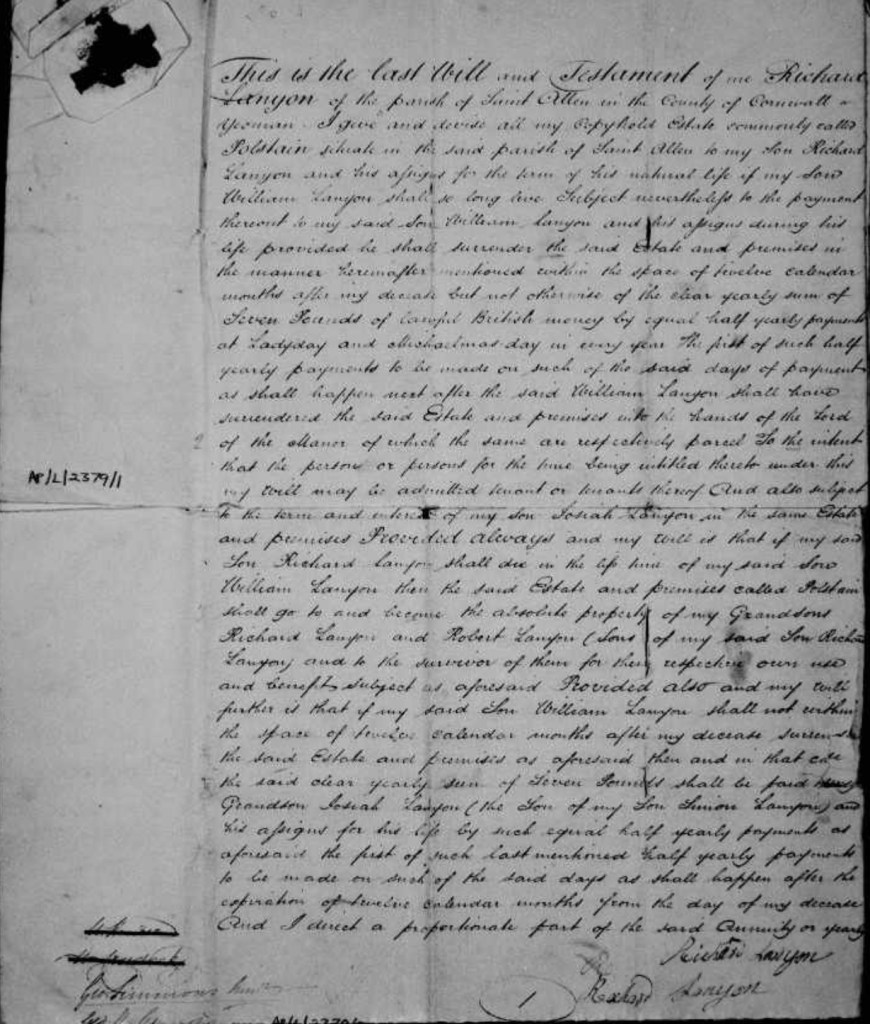 This is the last Will and Testament of me Richard
Lanyon of the parish of Saint Allen in the County of Cornwall
Yeoman I give and devise all my Copyhold Estate commonly called
Polstain situate in the said parish of Saint Allen to my Son Richard
Lanyon and his assigns for the term of his natural life if my Son
William Lanyon shall so long live Subject nevertheless to the payment
thereout to my said Son William Lanyon and his assigns during his
life provided he shall surrender the said Estate and premises in
the manner hereinafter mentioned within the space of twelve calendar
months after my decease but not otherwise of the clear yearly sum of
Seven Pounds of lawful British money by equal half yearly payments
at Ladyday and Michaelmas day in every year The first of such half
yearly payments to be made on such of the said days of payment
as shall happen next after the said William Lanyon shall have
surrendered the said Estate and premises into the hands of the Lord
of the Manor of which the same are respectively parcel To the intent
that the person or persons for the time being intitled thereto under this
AP/L/2379/1
my Will may be admitted tenant or tenants thereof And also subject
to the term and interest of my son Josiah Lanyon in the same Estate
and premises Provided always and my Will is that if my said
Son Richard Lanyon shall die in the life time of my said Son
William Lanyon then the said Estate and premises called Polstain
shall go to and become the absolute property of my Grandsons
Richard Lanyon and Robert Lanyon (Sons of my said Son Richard
Lanyon) and to the survivor of them for their respective own use
and benefit subject as aforesaid Provided also and my Will
further is that if my said Son William Lanyon shall not within
the space of twelve calendar months after my decease surrender
the said Estate and premises as aforesaid then and in that case
the said clear yearly sum of Seven Pounds shall be paid
Grandson Josiah Lanyon (the Son of my Son Simon Lanyon) and
his assigns for his life by such equal half yearly payments as
aforesaid the first of such last mentioned half yearly payments
to be made on such of the said days as shall happen after the
expiration of twelve calendar months from the day of my decease
And I direct a proportionate part of the said Annuity or yearly
Richard Lanyon
Geo Simmons
1
Richard Lanyon